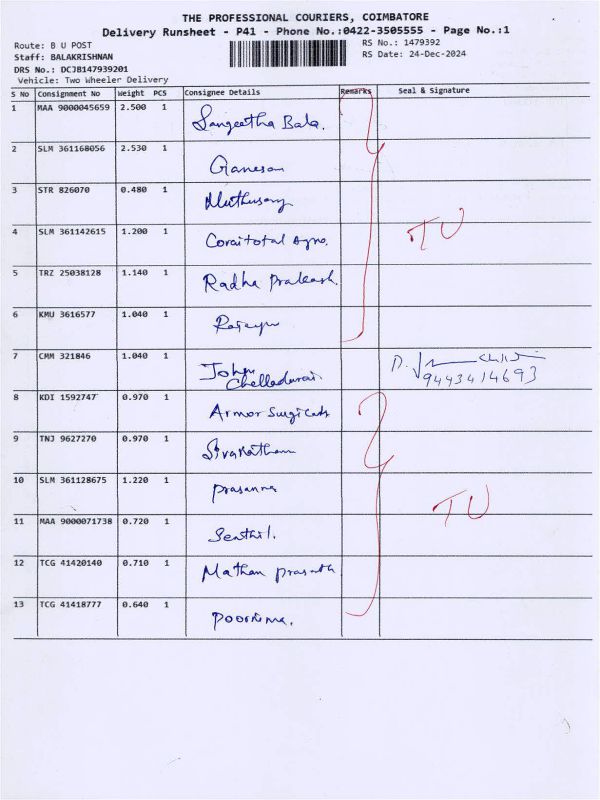 THE PROFESSIONAL COURIERS, COIMBATORE
Delivery Runsheet - P41 - Phone No.:0422-3505555 - Page No.:1
Route: B U POST
RS No.: 1479392
Staff: BALAKRISHNAN
RS Date: 24-Dec-2024
DRS No.: DCJB147939201
Vehicle: Two Wheeler Delivery
S No Consignment No Weight PCS Consignee Details Remarks Seal & Signature
1 MAA 9000045659 2.500 1 Sangeetha Bala.
2 SLM 361168056 2.530 1 Ganesan
3 STR 826070 0.480 1 Muthusamy
4 SLM 361142615 1.200 1 Coraitotal Agro. TU
5 TRZ 25038128 1.140 1 Radha Prakash.
6 KMU 3616577 1.040 1
7 CMM 321846 1.040 1 John
Chelladurai. 9443414693
8 KDI 1592747 0.970 1 Armor Surgicals
9 TNJ 9627270 0.970 1 Sivanatham
10 SLM 361128675 1.220 1 Prasanna TU
11 MAA 9000071738 0.720 1 Senthil.
12 TCG 41420140 0.710 1 Mathan Prasath
13 TCG 41418777 0.640 1 Poornima.